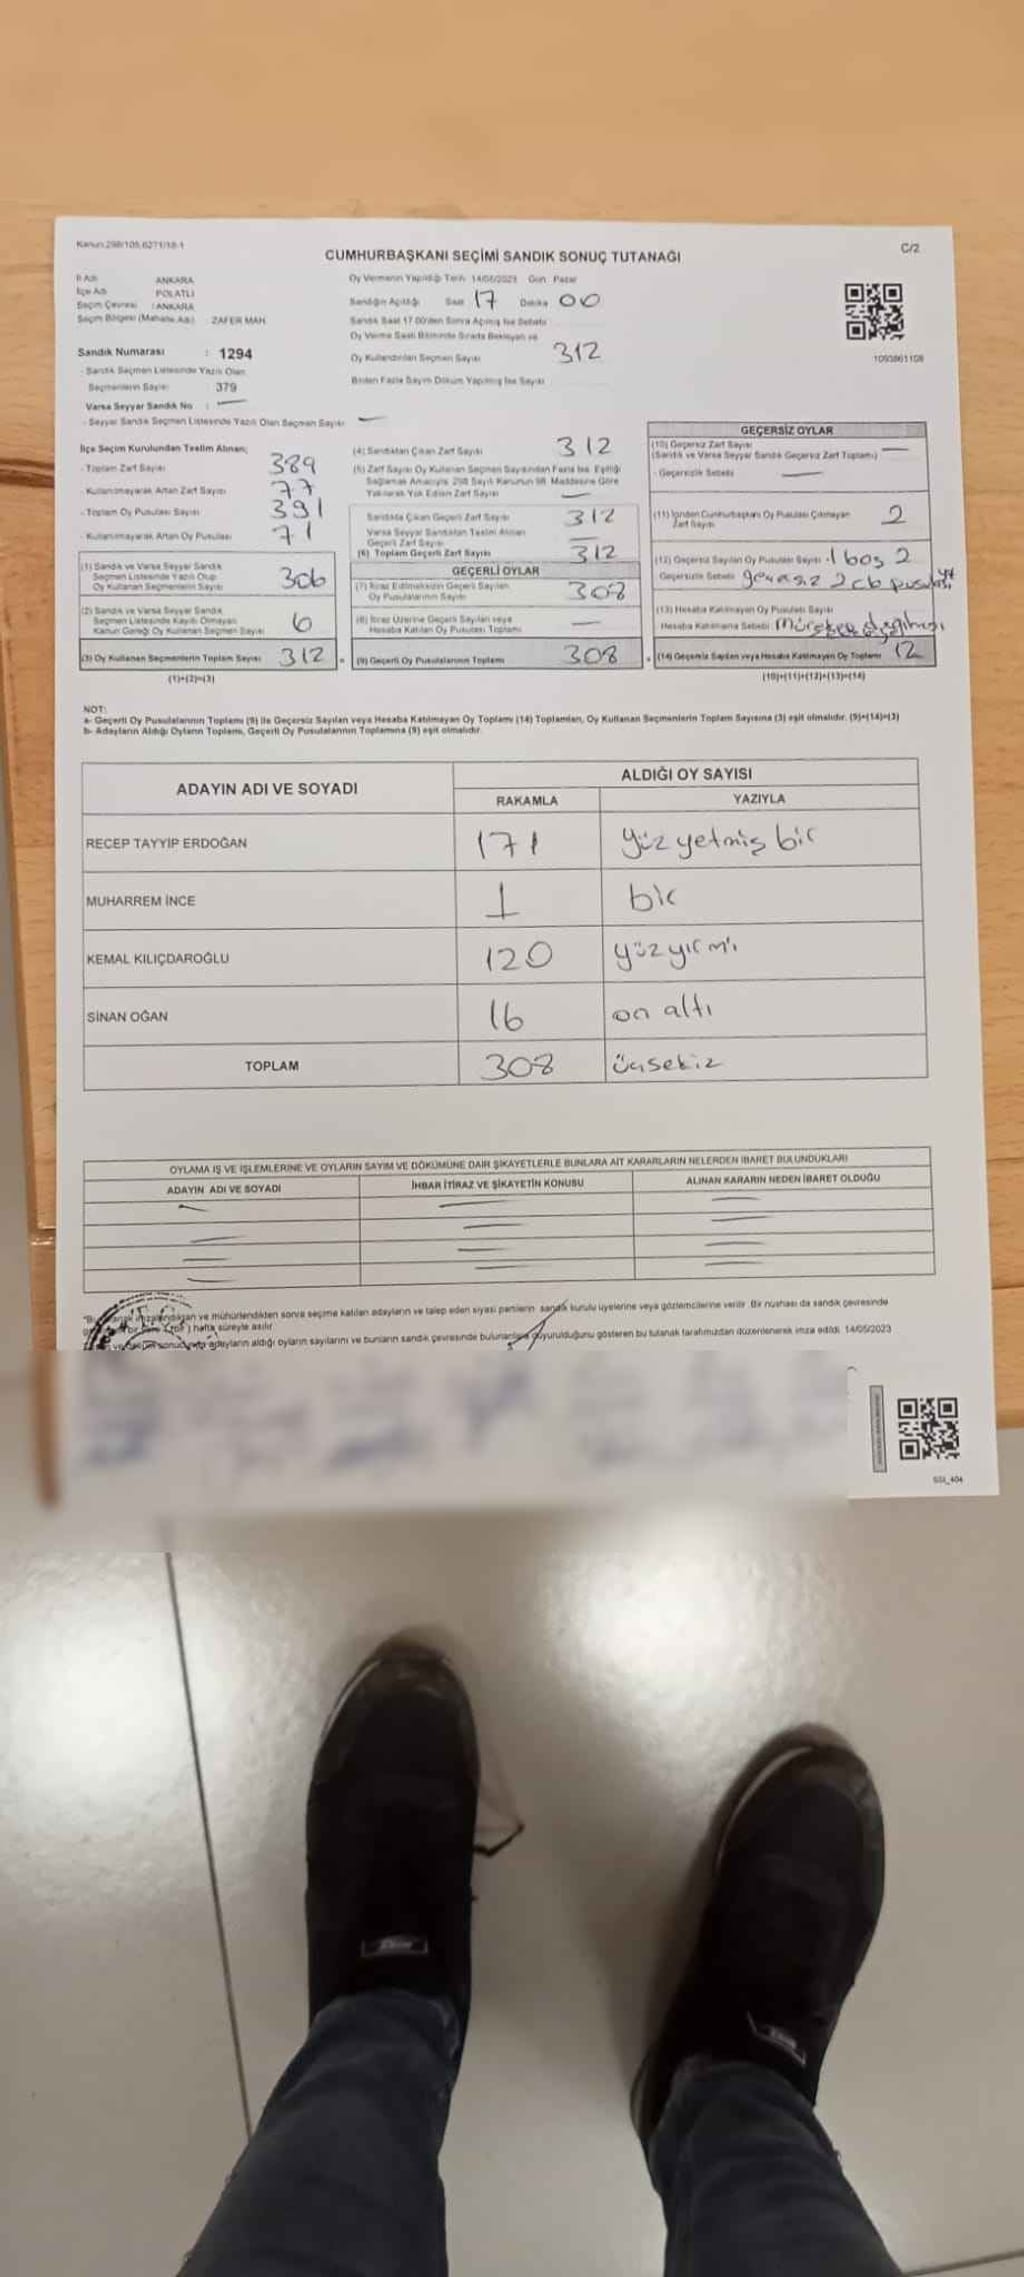 Kanun:298/105,6271/18-1
C/2
CUMHURBAŞKANI SEÇİMİ SANDIK SONUÇ TUTANAĞI
İl Adı ANKARA
İlçe Adı POLATLI
Seçim Çevresi : ANKARA
Seçim Bölgesi (Mahalle Adı) ZAFER MAH
Sandık Numarası : 1294
- Sandık Seçmen Listesinde Yazılı Olan
Seçmenlerin Sayısı 379
Varsa Seyyar Sandık No :
- Seyyar Sandık Seçmen Listesinde Yazılı Olan Seçmen Sayısı
Oy Vermenin Yapıldığı Tarih 14/05/2023 Gün Pazar
Sandığın Açıldığı Saat 17 Dakika 00
Sandık Saat 17.00'den Sonra Açılmış İse Sebebi
Oy Verme Saati Bitiminde Sırada Bekleyen ve
Oy Kullandırılan Seçmen Sayısı 312
Birden Fazla Sayım Döküm Yapılmış İse Sayısı
1093861108
İlçe Seçim Kurulundan Teslim Alınan;
- Toplam Zarf Sayısı 389
- Kullanılmayarak Artan Zarf Sayısı 77
- Toplam Oy Pusulası Sayısı 391
- Kullanılmayarak Artan Oy Pusulası 71
(1) Sandık ve Varsa Seyyar Sandık
Seçmen Listesinde Yazılı Olup
Oy Kullanan Seçmenlerin Sayısı 306
(2) Sandık ve Varsa Seyyar Sandık
Seçmen Listesinde Kayıtlı Olmayan
Kanun Gereği Oy Kullanan Seçmen Sayısı 6
(3) Oy Kullanan Seçmenlerin Toplam Sayısı 312
(1)+(2)=(3)
(4) Sandıktan Çıkan Zarf Sayısı 312
(5) Zarf Sayısı Oy Kullanan Seçmen Sayısından Fazla İse, Eşitliği
Sağlamak Amacıyla 298 Sayılı Kanunun 98. Maddesine Göre
Yakılarak Yok Edilen Zarf Sayısı
Sandıkta Çıkan Geçerli Zarf Sayısı 312
Varsa Seyyar Sandıktan Teslim Alınan
Geçerli Zarf Sayısı
(6) Toplam Geçerli Zarf Sayısı 312
GEÇERLİ OYLAR
(7) İtiraz Edilmeksizin Geçerli Sayılan
Oy Pusulalarının Sayısı 308
(8) İtiraz Üzerine Geçerli Sayılan veya
Hesaba Katılan Oy Pusulası Toplamı
(9) Geçerli Oy Pusulalarının Toplamı 308
GEÇERSİZ OYLAR
(10) Geçersiz Zarf Sayısı
(Sandık ve Varsa Seyyar Sandık Geçersiz Zarf Toplamı)
- Geçersizlik Sebebi
(11) İçinden Cumhurbaşkanı Oy Pusulası Çıkmayan
Zarf Sayısı 2
(12) Geçersiz Sayılan Oy Pusulası Sayısı 1 boş 2
Geçersizlik Sebebi geçersiz 2 cb pusulası
(13) Hesaba Katılmayan Oy Pusulası Sayısı
Hesaba Katılmama Sebebi mürekkep dağılması
(14) Geçersiz Sayılan veya Hesaba Katılmayan Oy Toplamı 12
(10)+(11)+(12)+(13)=(14)
NOT:
a- Geçerli Oy Pusulalarının Toplamı (9) ile Geçersiz Sayılan veya Hesaba Katılmayan Oy Toplamı (14) Toplamları, Oy Kullanan Seçmenlerin Toplam Sayısına (3) eşit olmalıdır. (9)+(14)=(3)
b- Adayların Aldığı Oyların Toplamı, Geçerli Oy Pusulalarının Toplamına (9) eşit olmalıdır.
ADAYIN ADI VE SOYADI
ALDIĞI OY SAYISI
RAKAMLA YAZIYLA
RECEP TAYYİP ERDOĞAN 171 yüz yetmiş bir
MUHARREM İNCE 1 bir
KEMAL KILIÇDAROĞLU 120 yüz yirmi
SİNAN OĞAN 16 on altı
TOPLAM 308 üçsekiz
OYLAMA İŞ VE İŞLEMLERİNE VE OYLARIN SAYIM VE DÖKÜMÜNE DAİR ŞİKAYETLERLE BUNLARA AİT KARARLARIN NELERDEN İBARET BULUNDUKLARI
ADAYIN ADI VE SOYADI İHBAR İTİRAZ VE ŞİKAYETİN KONUSU ALINAN KARARIN NEDEN İBARET OLDUĞU
ve mühürlendikten sonra seçime katılan adayların ve talep eden siyasi partilerin sandık kurulu üyelerine veya gözlemcilerine verilir. Bir nüshası da sandık çevresinde
hafta süreyle asılır.
adayların aldığı oyların sayılarını ve bunların sandık çevresinde duyurulduğunu gösteren bu tutanak tarafımızdan düzenlenerek imza edildi. 14/05/2023